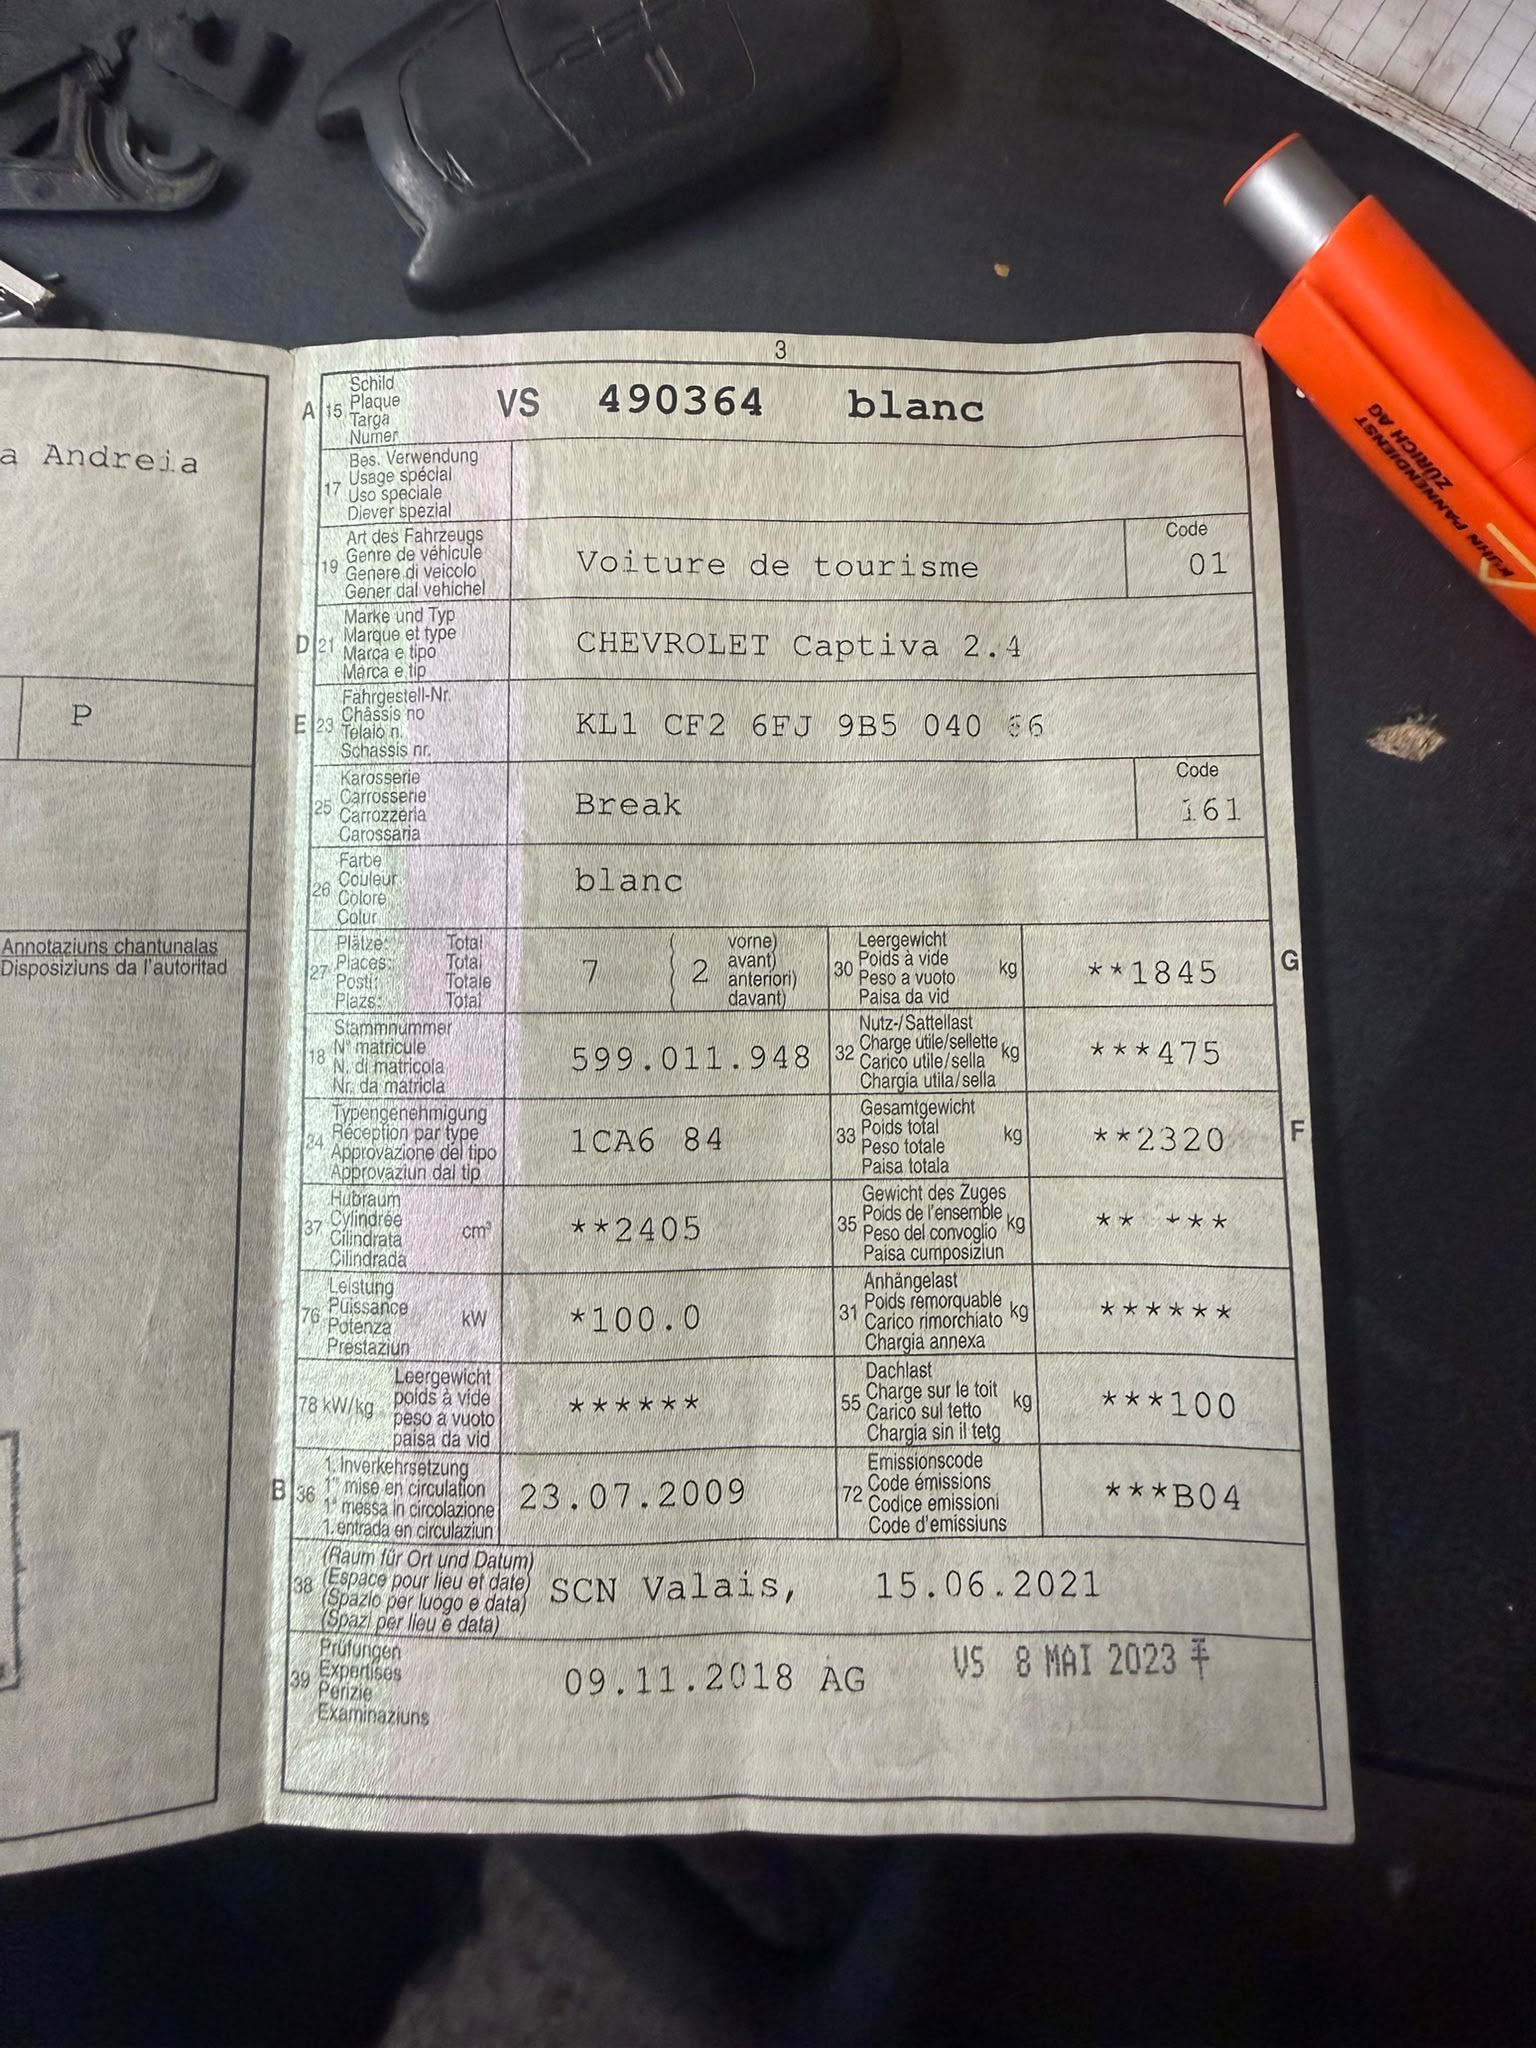 a Andreia
P
Annotaziuns chantunalas
Disposiziuns da l'autoritad
3
A 15 Schild
Plaque
Targa
Numer
VS 490364 blanc
17 Bes. Verwendung
Usage spécial
Uso speciale
Diever spezial
19 Art des Fahrzeugs
Genre de véhicule
Genere di veicolo
Gener dal vehichel
Voiture de tourisme
Code
01
D 21 Marke und Typ
Marque et type
Marca e tipo
Marca e tip
CHEVROLET Captiva 2.4
E 23 Fahrgestell-Nr.
Châssis no
Telaio n.
Schassis nr.
KL1 CF2 6FJ 9B5 040 66
25 Karosserie
Carrosserie
Carrozzeria
Carossaria
Break
Code
161
26 Farbe
Couleur
Colore
Colur
blanc
27 Plätze: Total
Places: Total
Posti: Totale
Plazs: Total
7
( 2 vorne)
avant)
anteriori)
( davant)
30 Leergewicht
Poids à vide
Peso a vuoto
Paisa da vid
kg
**1845
G
18 Stammnummer
N° matricule
N. di matricola
Nr. da matricla
599.011.948
32 Nutz-/Sattellast
Charge utile/sellette
Carico utile/sella
Chargia utila/sella
kg
***475
24 Typengenehmigung
Réception par type
Approvazione del tipo
Approvaziun dal tip
1CA6 84
33 Gesamtgewicht
Poids total
Peso totale
Paisa totala
kg
**2320
F
37 Hubraum
Cylindrée
Cilindrata
Cilindrada
cm³
**2405
35 Gewicht des Zuges
Poids de l'ensemble
Peso del convoglio
Paisa cumposiziun
kg
** ***
76 Leistung
Puissance
Potenza
Prestaziun
kW
*100.0
31 Anhängelast
Poids remorquable
Carico rimorchiato
Chargia annexa
kg
******
78 kW/kg Leergewicht
poids à vide
peso a vuoto
paisa da vid
******
55 Dachlast
Charge sur le toit
Carico sul tetto
Chargia sin il tetg
kg
***100
B 36 1. Inverkehrsetzung
1re mise en circulation
1a messa in circolazione
1. entrada en circulaziun
23.07.2009
72 Emissionscode
Code émissions
Codice emissioni
Code d'emissiuns
***B04
38 (Raum für Ort und Datum)
(Espace pour lieu et date)
(Spazio per luogo e data)
(Spazi per lieu e data)
SCN Valais, 15.06.2021
39 Prüfungen
Expertises
Perizie
Examinaziuns
09.11.2018 AG
VS 8 MAI 2023
KUHN PANNENDIENST
ZÜRICH AG